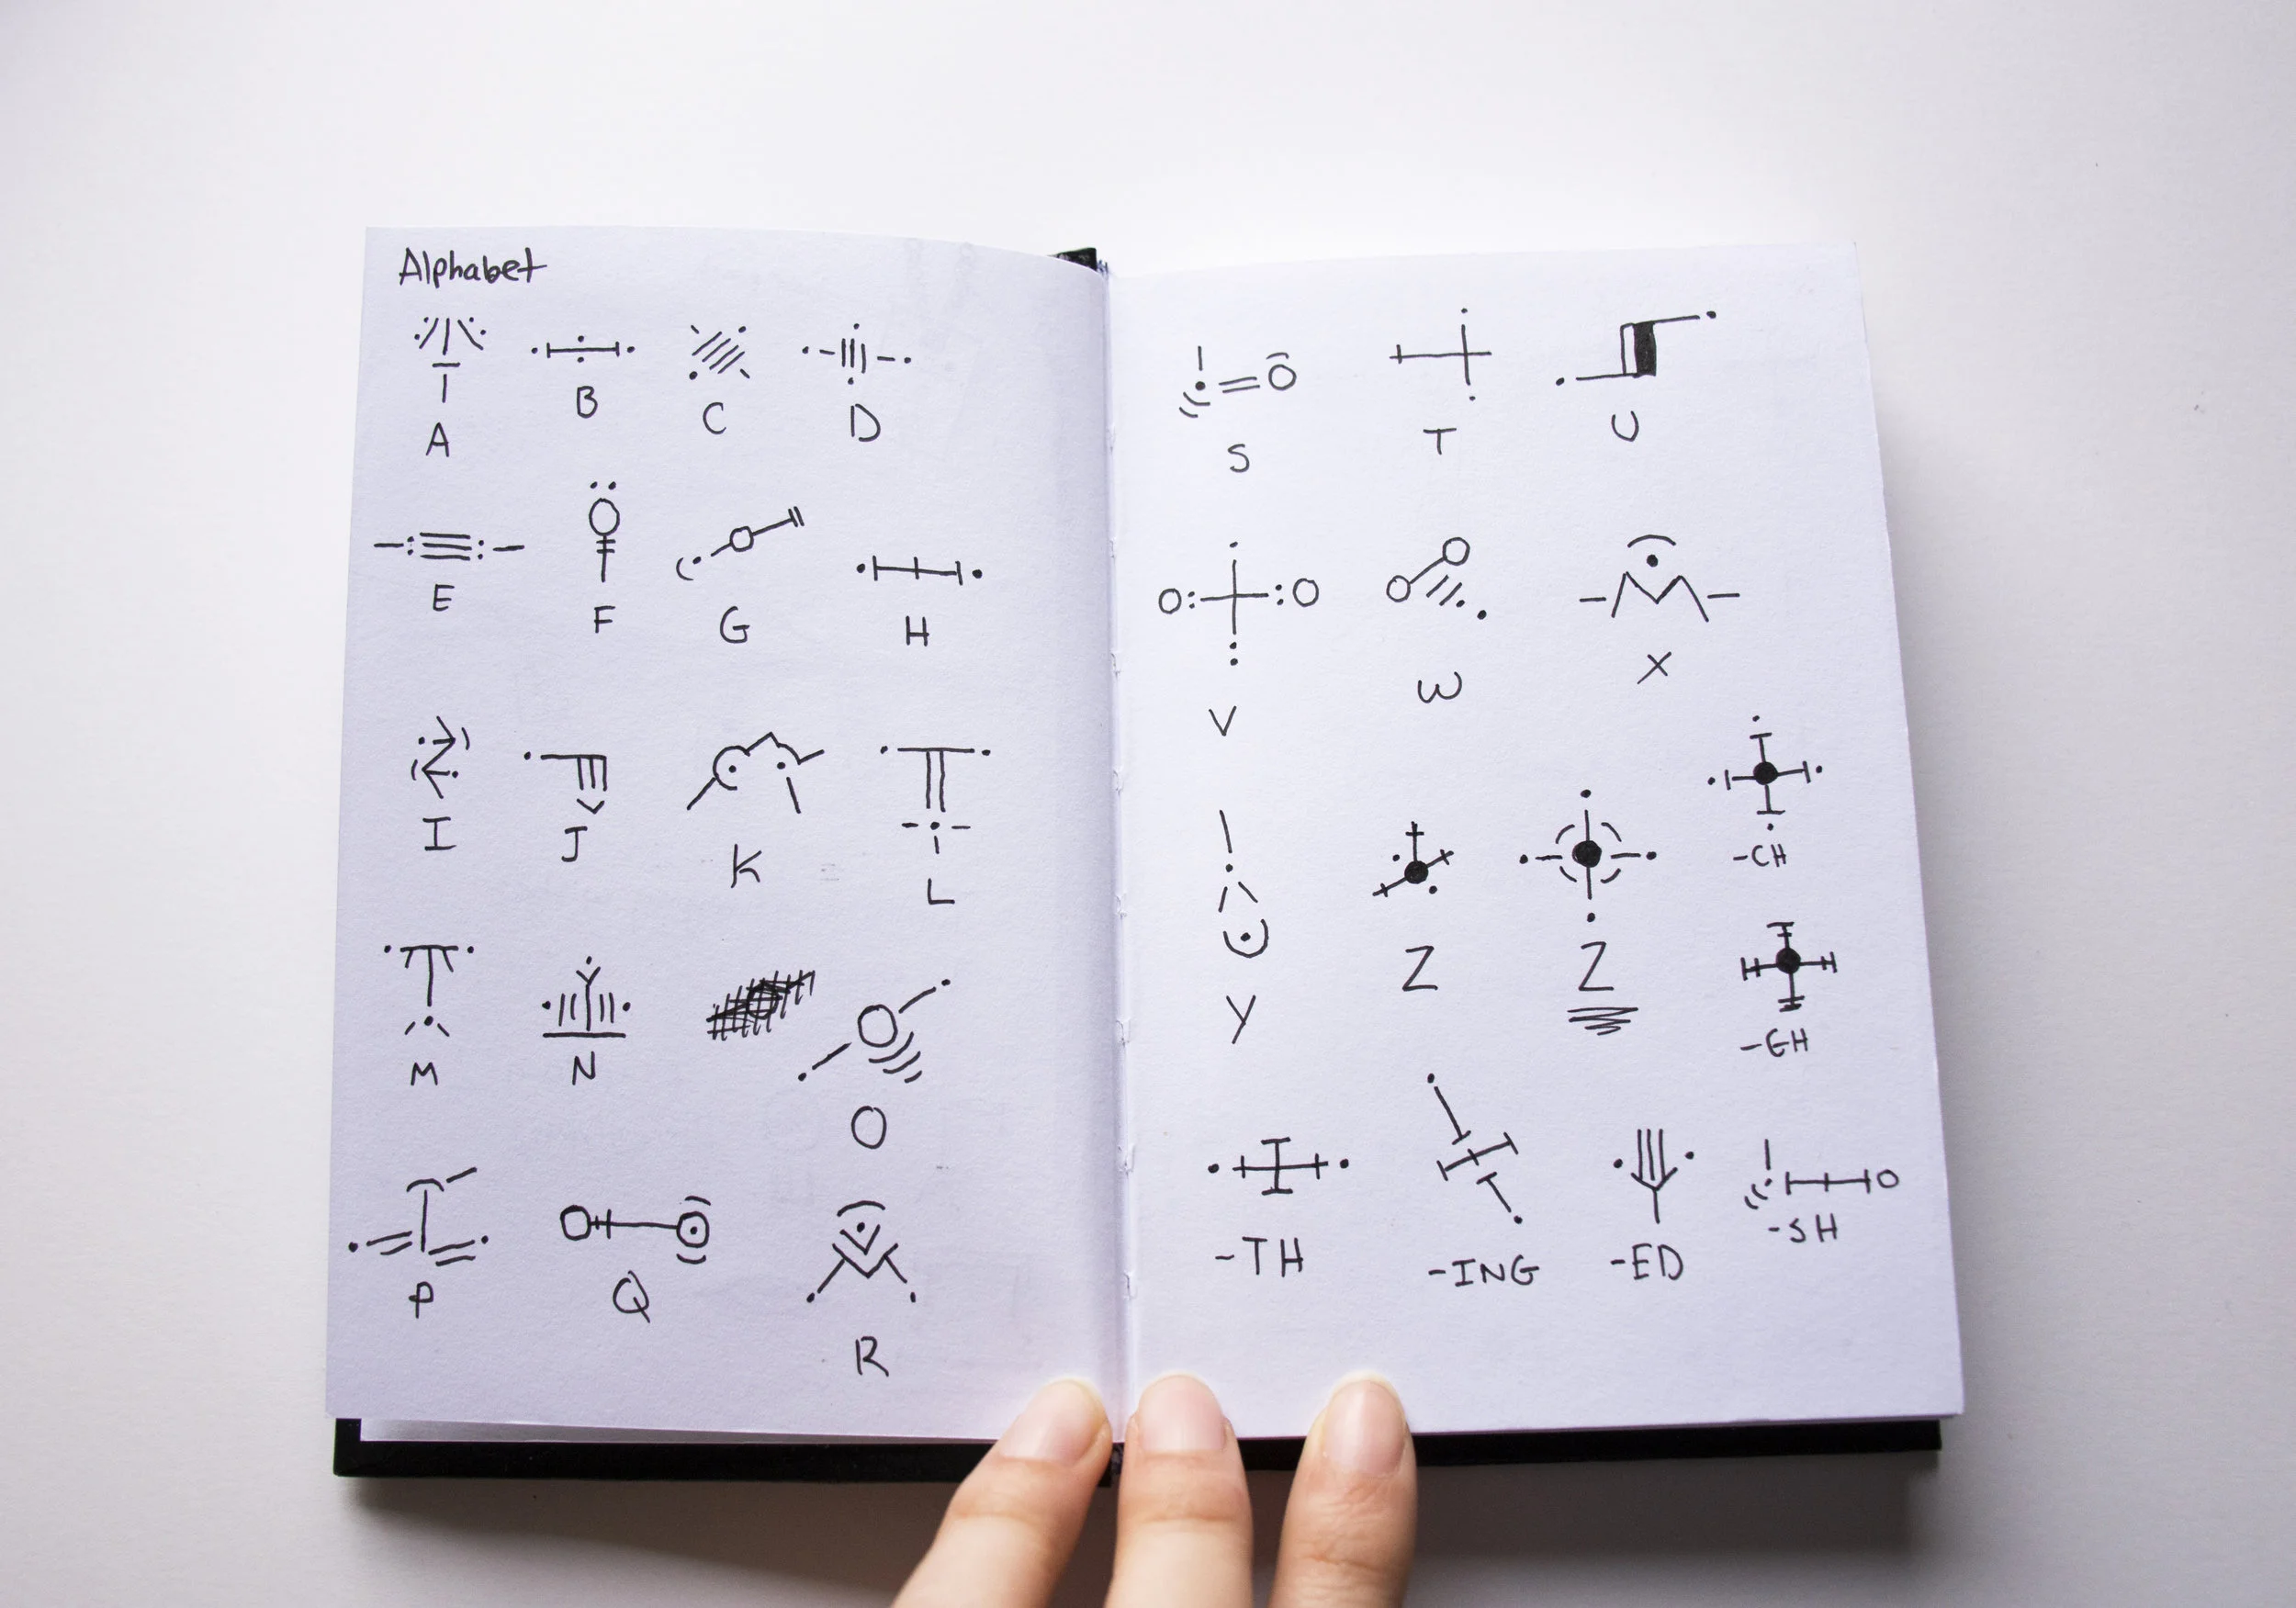 Alphabet
A B C D
E F G H
I J K L
M N O
P Q R
S T U
V W X
Y Z Z -CH
-GH
-TH -ING -ED -SH